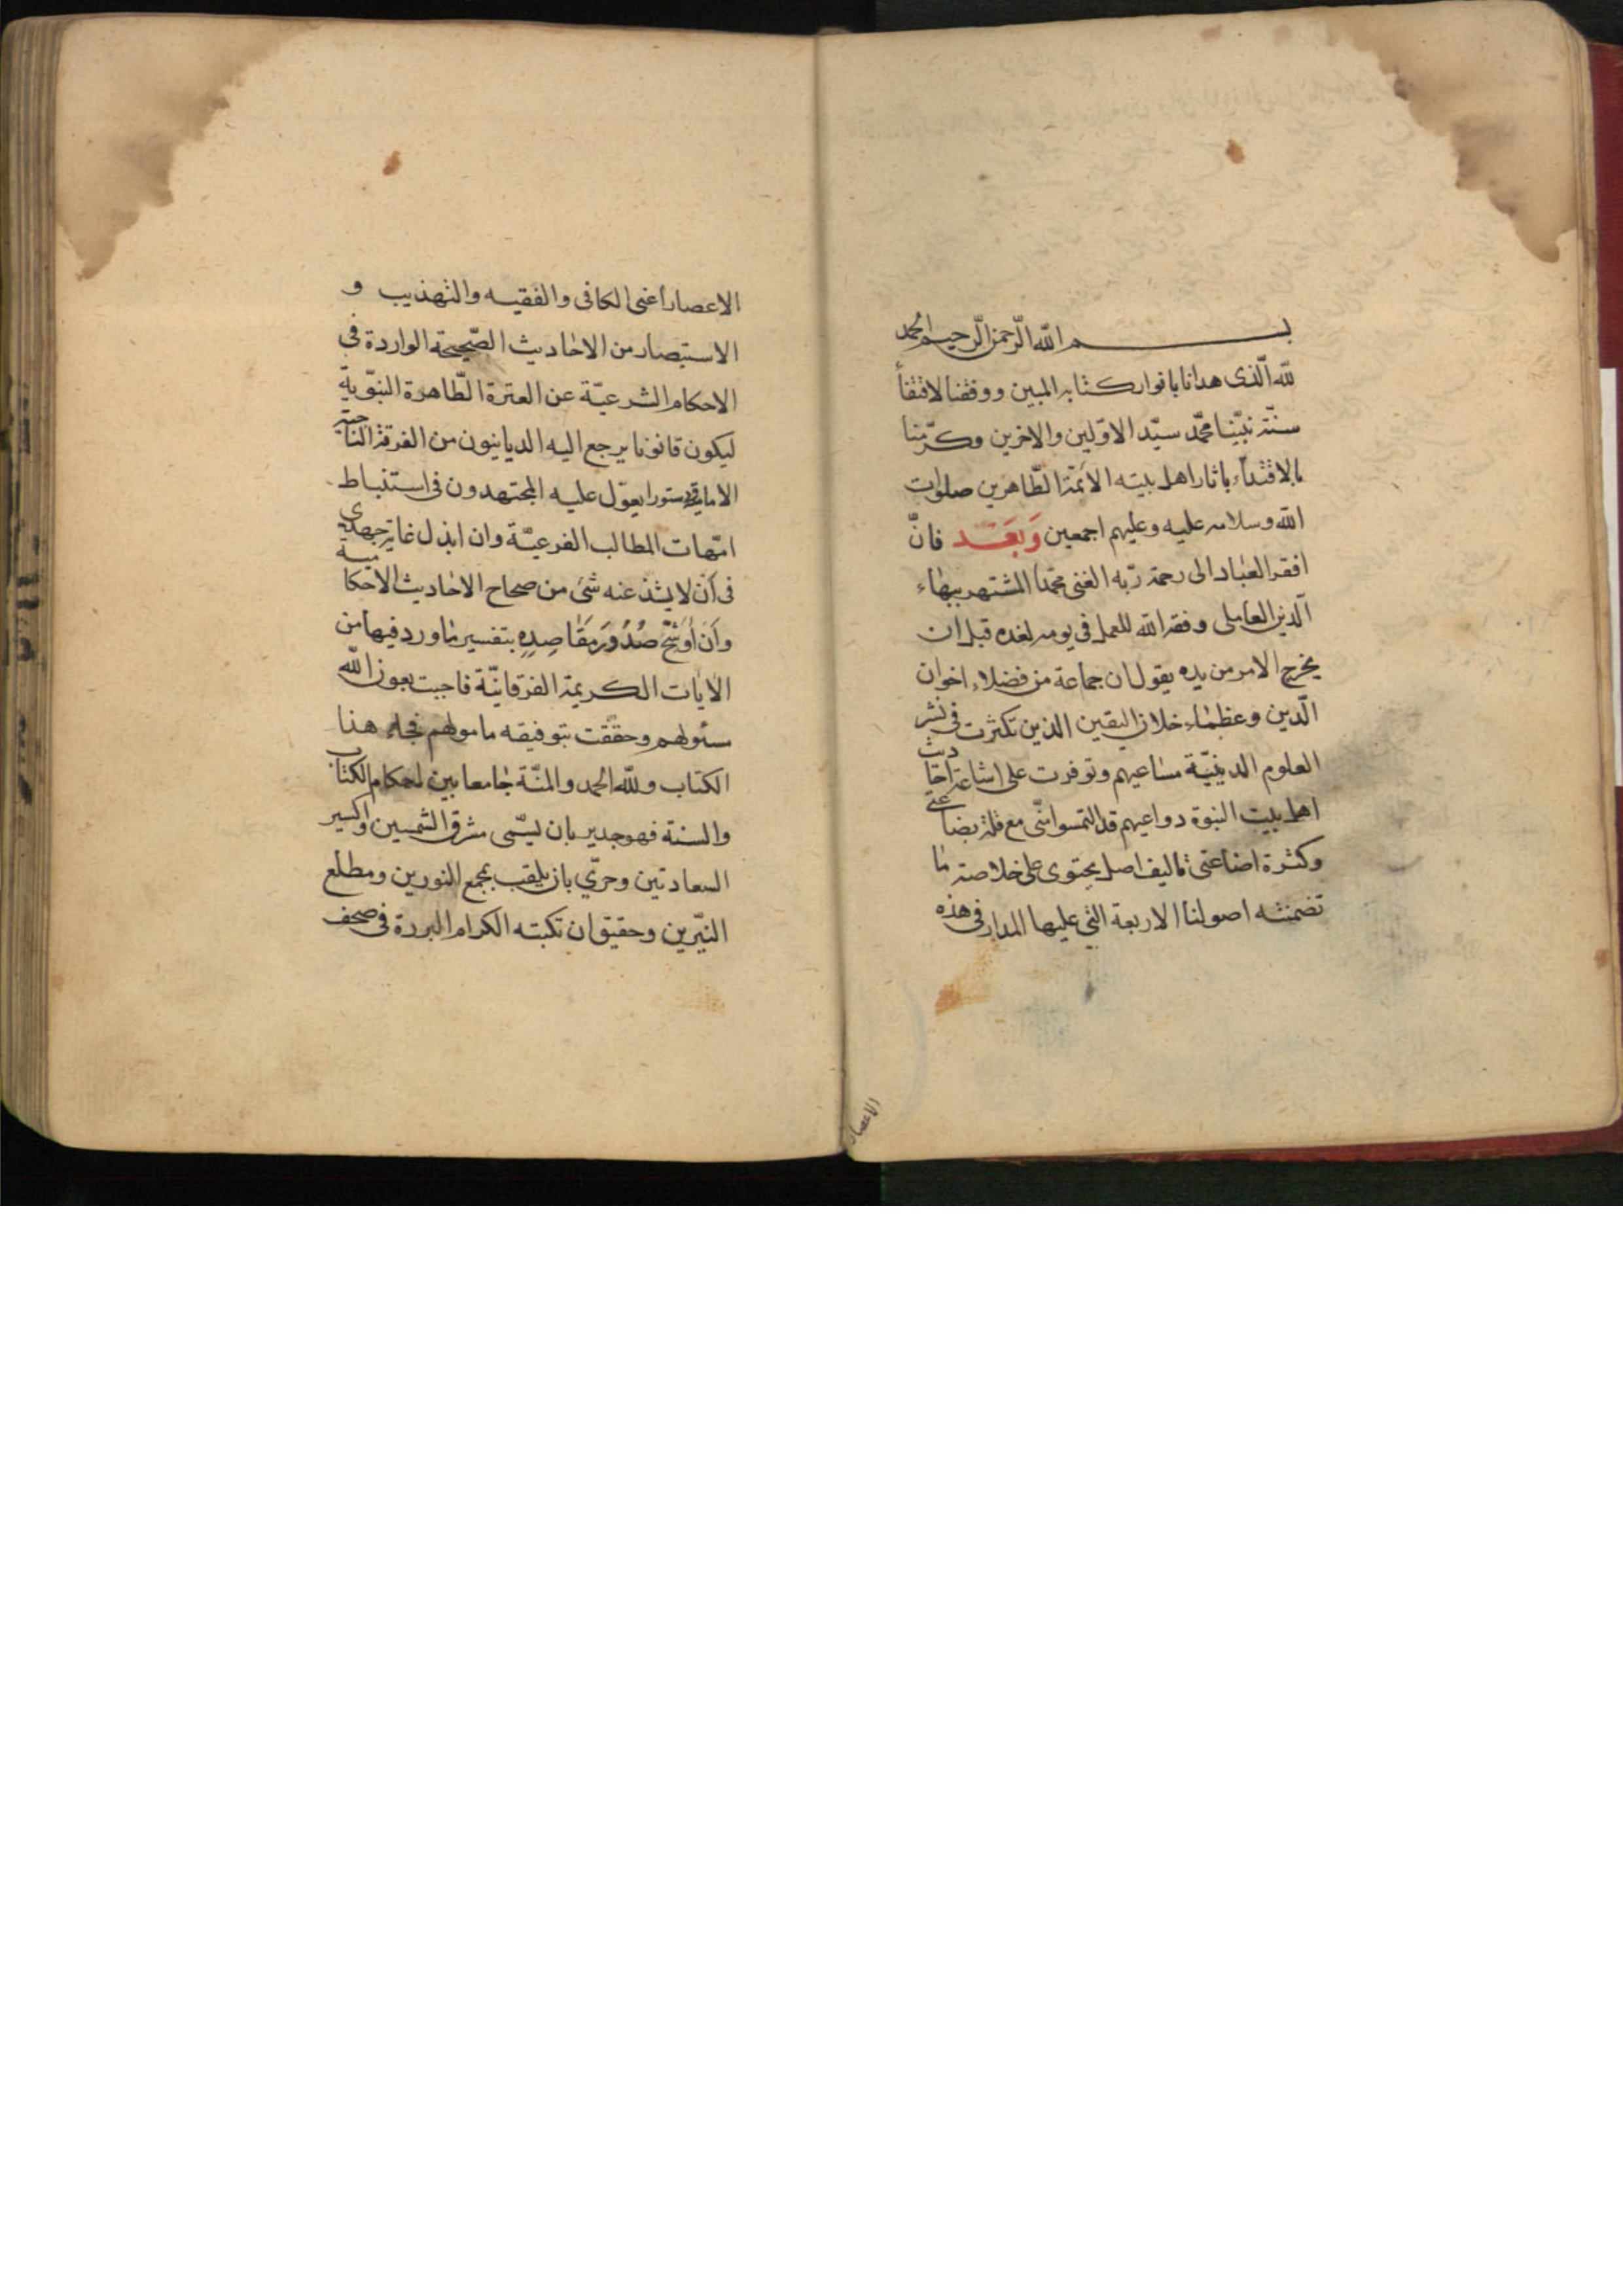 بسم الله الرحمن الرحيم الحمد
لله الّذى هدانا بانوار كتابه المبين ووفقنا لاقتفاء
سنّة نبيّنا محمّد سيّد الاوّلين والاخرين وكرّمنا
بالاقتداء باثار اهل بيته الائمّة الطّاهرين صلوات
الله وسلامه عليه وعليهم اجمعين وَبَعَد فانّ
افقر العباد الى رحمة ربّه الغنى محمّدا المشتهر ببهاء
الّدين العاملى وفقه الله للعمل فى يومه لغده قبل ان
يخرج الامر من يده يقول ان جماعة من فضلاء اخوان
الّدين وعظماء خلان اليقين الذين تكثرت فى نشر
العلوم الدينيّة مساعيهم وتوفرت على اشاعة احاديث
اهل بيت النبوة دواعيهم قد التمسوا منّى مع قلة بضاعتى
وكثرة اضاعتى تاليف اصل يحتوى على خلاصة ما
تضمنته اصولنا الاربعة التى عليها المدار فى هذه
الاعصار
الاعصار اعنى الكافى والفقيه والتهذيب و
الاستبصار من الاحاديث الصّحيحة الواردة فى
الاحكام الشرعيّة عن العترة الطّاهرة النبّوية
ليكون قانونا يرجع اليه الديانيون من الفرقة الناجية
الامامية ودستورا يعوّل عليه المجتهدون فى استنباط
امّهات المطالب الفرعيّة وان ابذل غاية جهدى
فى اَن لا يشذ عنه شئ من صحاح الاحاديث الاحكامية
واَن اُوَشّح صُدُورَ مَقَاصِدِهِ بتفسير ما ورد فيها من
الايات الكريمة الفرقانيّة فاجبت بعون الله
سئولهم وحققت بتوفيقه مامولهم فجاء هذا
الكتاب ولله الحمد والمنّة جامعا بين احكام الكتاب
والسنة فهو جدير بان يسّمى مشرق الشمسين واكسير
السعادتين وحرّي بان يلقب بمجمع النورين ومطلع
النيّرين وحقيق ان تكبته الكرام البررة فى صحف